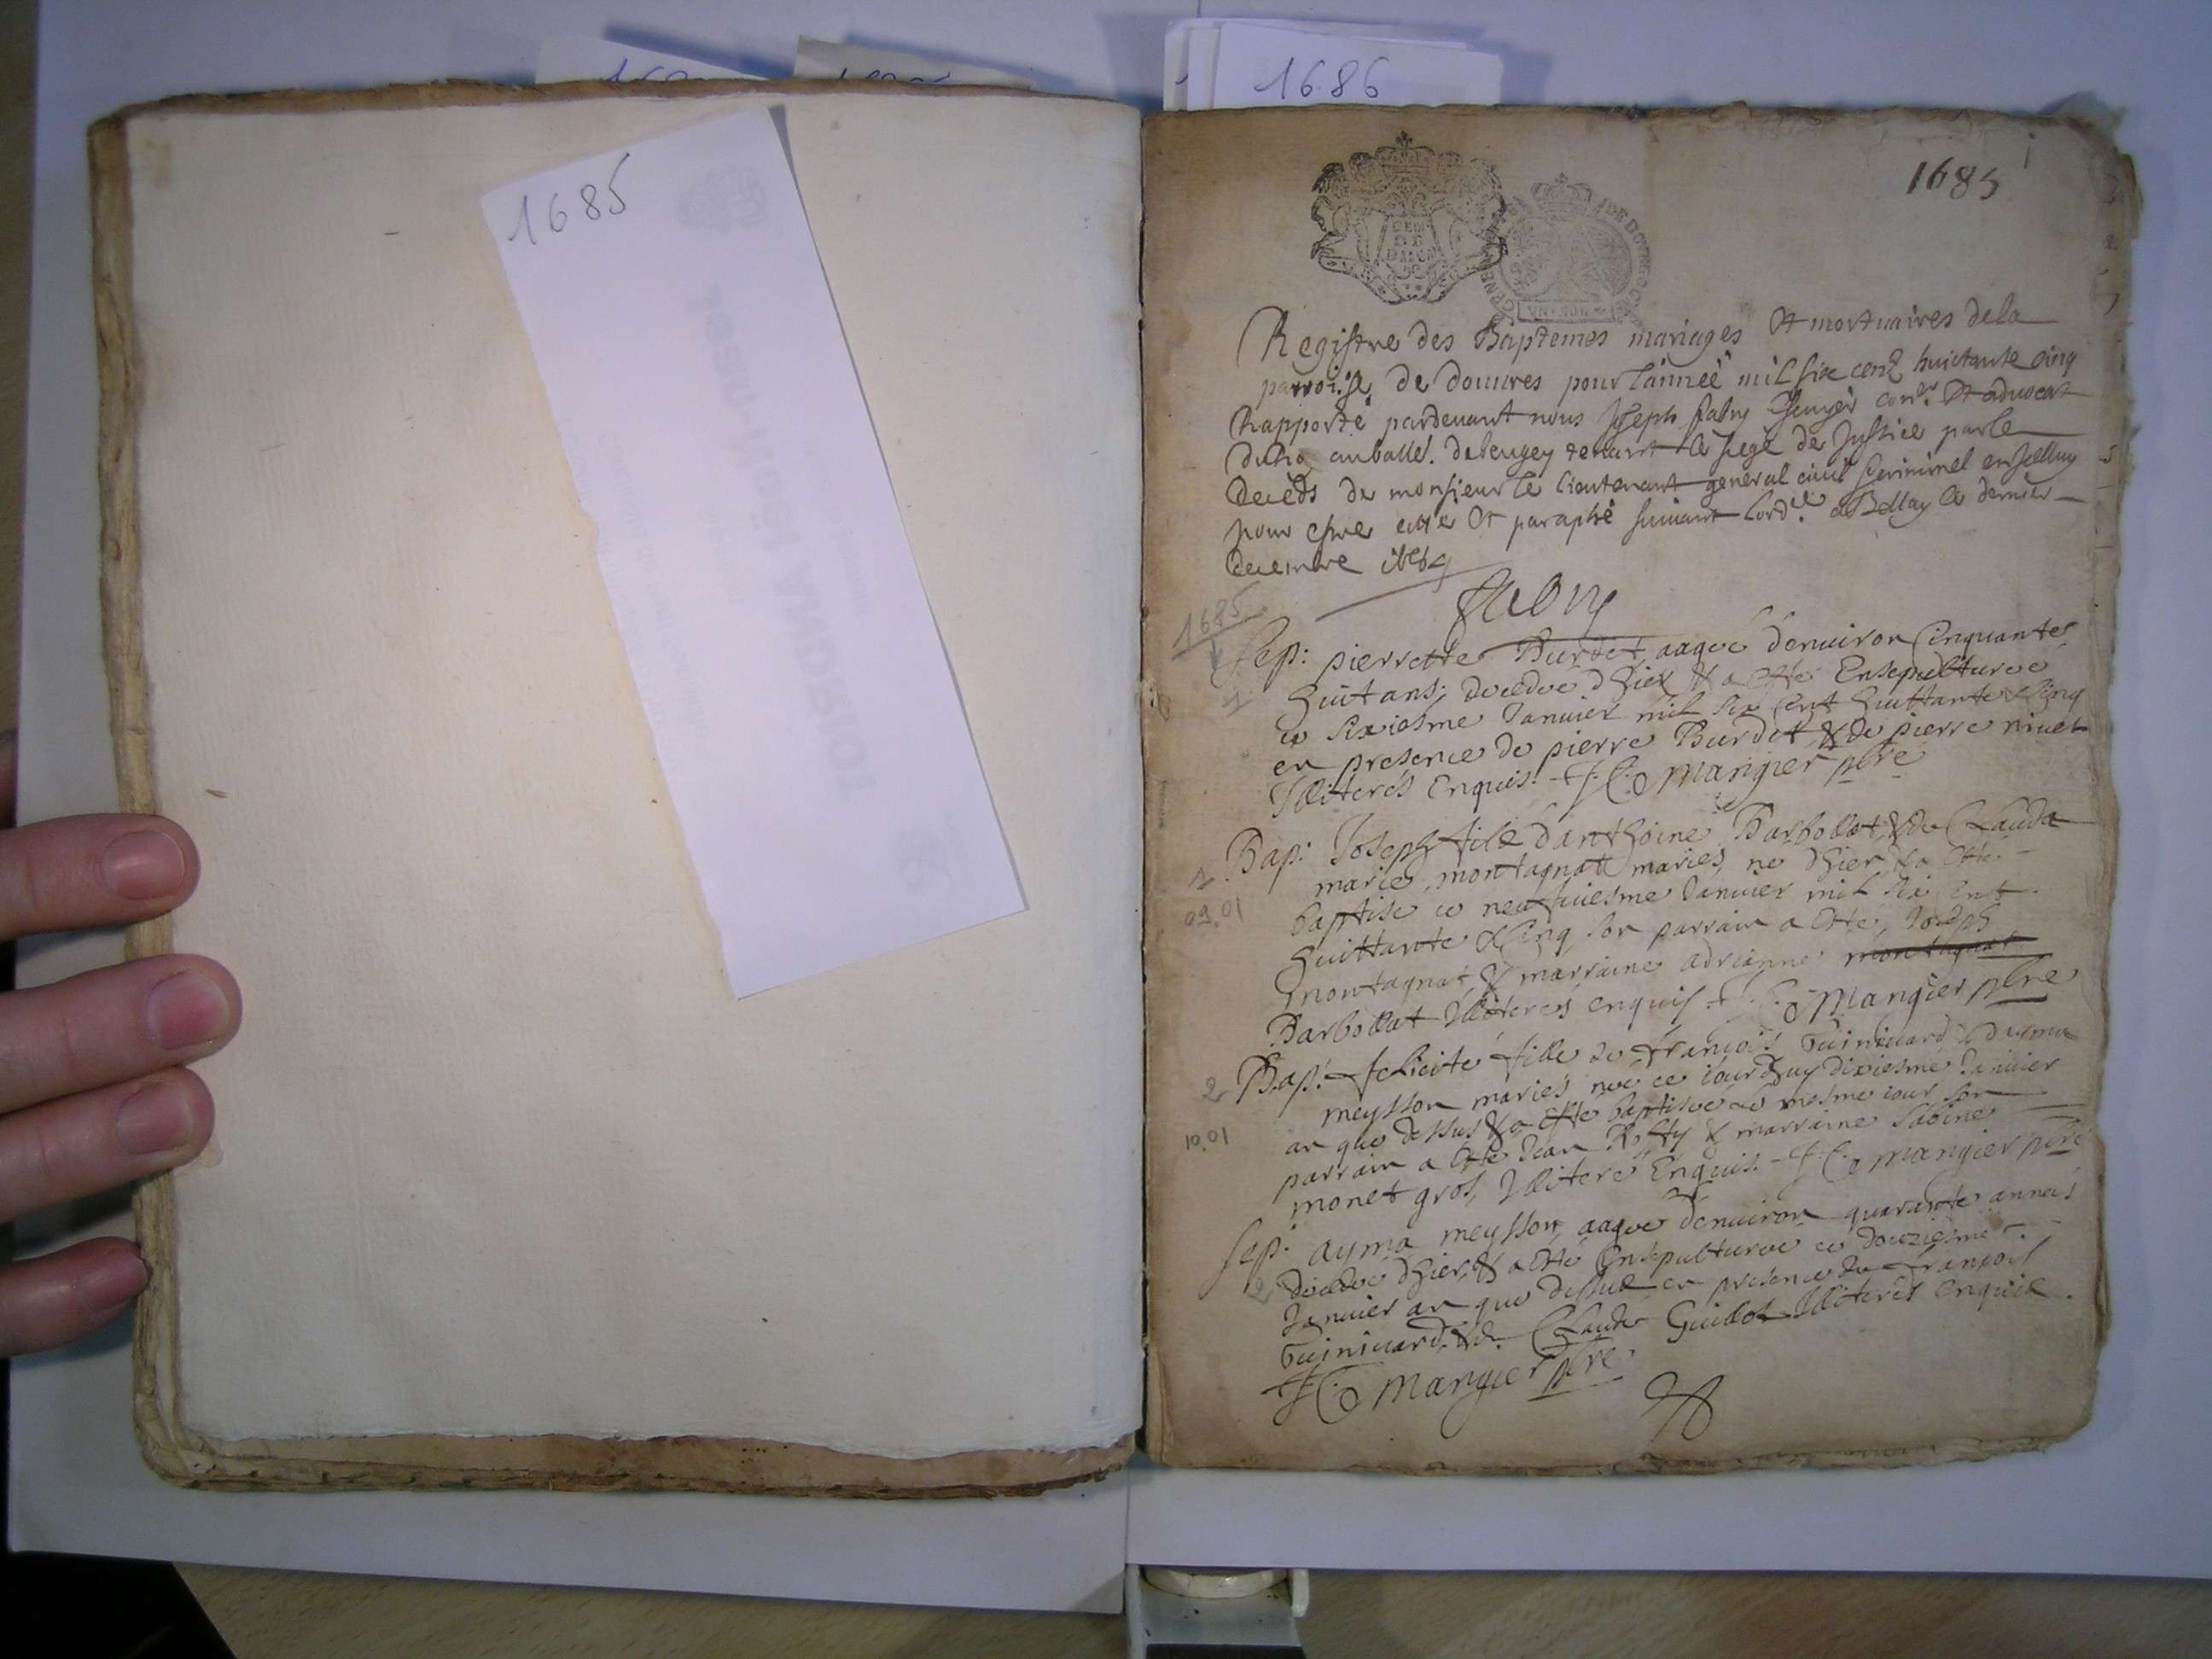 1686
1685
1685
GEN
DE
Registre des Baptemes mariages Et mortuaires dela
parroisse de douures pour lánneé mil six cent huictante cinq
Rapporté pardeuant nous Joseph fabry Escuyer con.er Et aduocat
du Roy au balle. debeugey tenant le siege de Justice parle
deceds de monsieur le lieutenant general ciuil criminel enjcelluy
pour estre cotté Et paraphé suiuant lord.ce a Bellay le dernier
decembre 1684
fabry
1685
Sep: pierrette Burdet aageé denuiron Cinquante
1
huit ans; decedeé dhier & a Esté Ensepultureé
ce sixiesme Januier mil six Cent huittante & Cinq
en presence de pierre Burdet & de pierre niuet
Illiterés Enquis. J C Mangier pbre
1
Bap: Joseph fils danthoine Barbollat & de Clauda
09.01
marie montagnat mariés, né dhier & a Esté
baptisé ce neufuiesme Januier mil six Cent
huittante & Cinq son parrain a Esté, Joseph
montagnat, & marraine adrianne montagnat
Barbollat Illiterés enquis. J C Mangier pbre
2
Bap: felicité fille de françois Guinuard & dayma
10.01
meysson mariés neé ce iourdhuy dixiesme Januier
an que dessus & a esté baptiseé ce mesme iour son
parrain a Esté Jean & marraine Sabine
monet gros, Illiteré Enquis. J C Mangier pbre
Sep: ayma meysson aageé denuiron quarante anneés
2
decedeé dhier, & a Esté Ensepultureé ce douziesme
Januier an que dessus en presence de françois
Guinuard, & de Claude Guillot Illiterés Enquis.
J C Mangier pbre